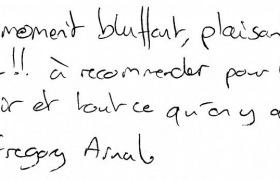 moment bluffant, plaisan
!! à recommander pour
ir et tout ce qu'on y a
Gregory Arnal